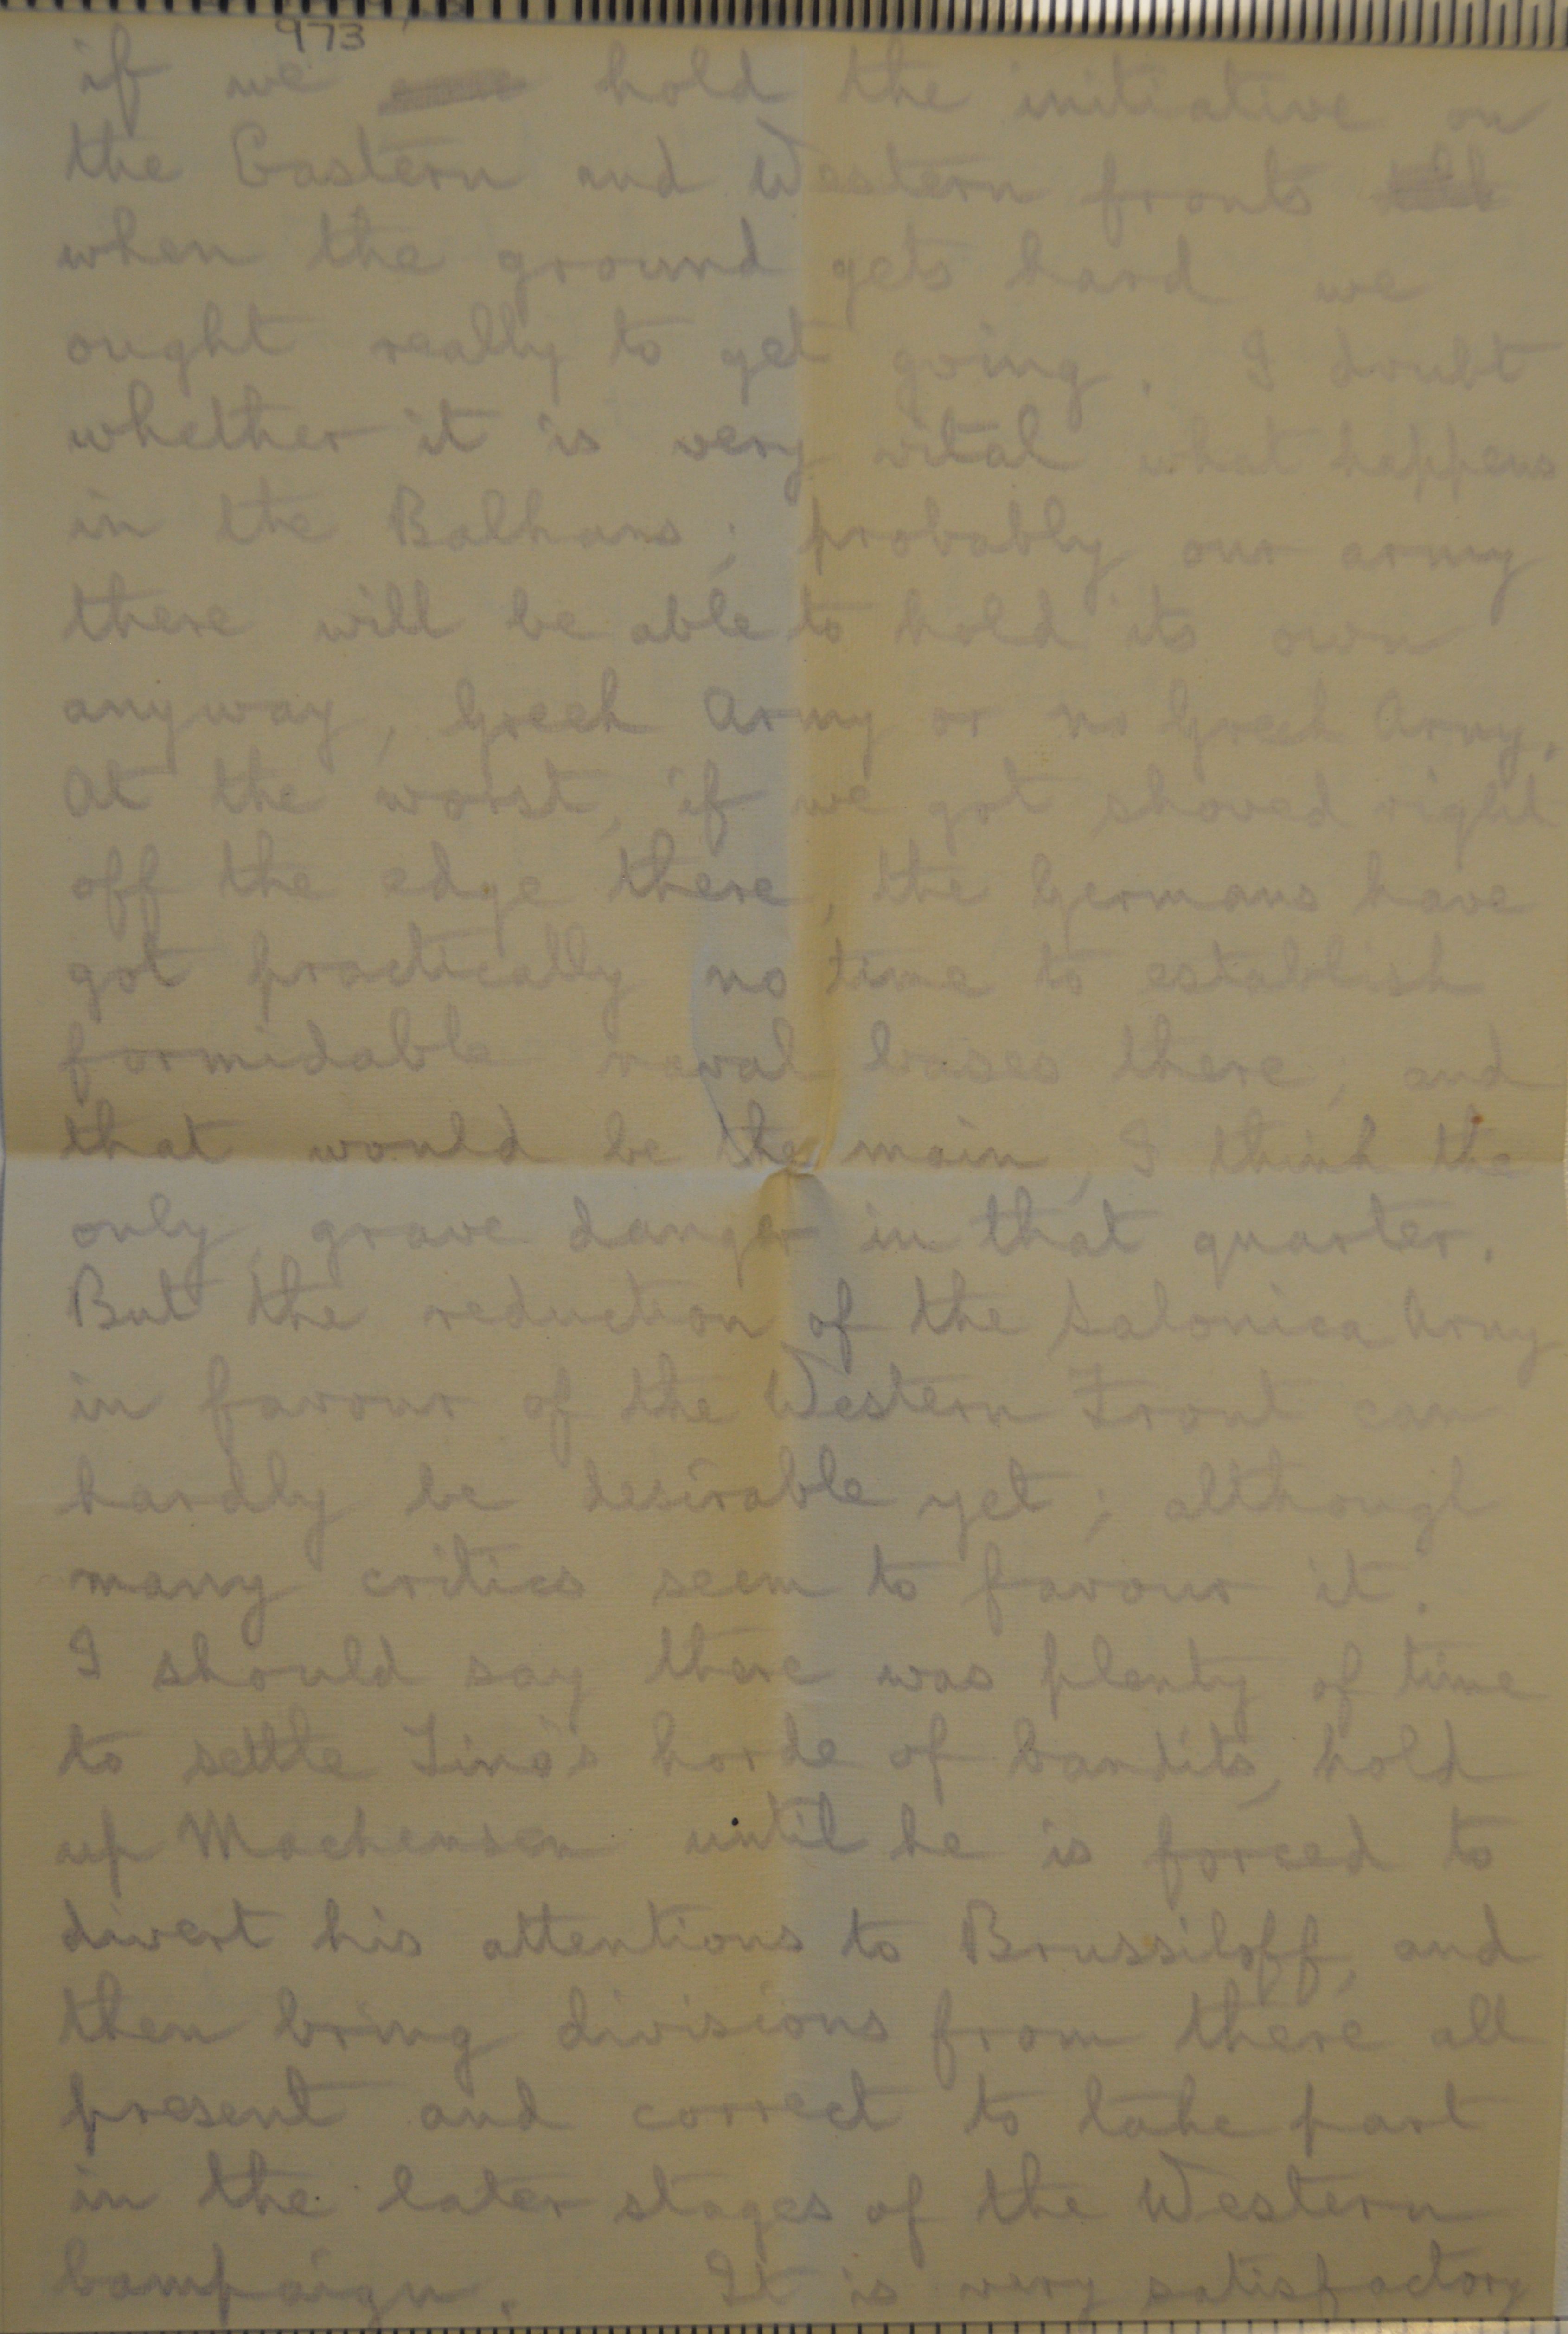 973
if we hold the initiative on
the Eastern and Western fronts
when the ground gets hard we
ought really to get going. I doubt
whether it is very vital what happens
in the Balkans; probably our army
there will be able to hold its own
anyway, Greek Army or no Greek Army.
At the worst, if we got shoved right
off the edge there, the Germans have
got practically no time to establish
formidable naval bases there; and
that would be the main, I think the
only, grave danger in that quarter.
But the reduction of the Salonica Army
in favour of the Western Front can
hardly be desirable yet; although
many critics seem to favour it.
I should say there was plenty of time
to settle Tino's horde of bandits, hold
up Mackensen until he is forced to
divert his attentions to Brussiloff, and
then bring divisions from there all
present and correct to take part
in the later stages of the Western
Campaign. It is very satisfactory